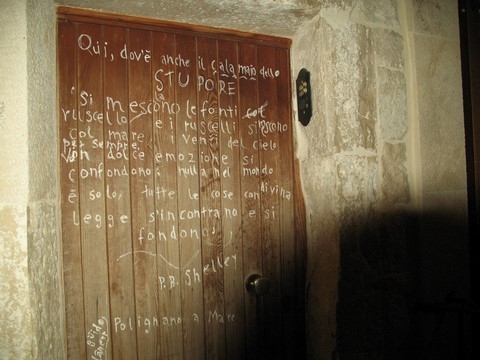 Qui, dov'è anche il calamaio dello
STUPORE
"Si mescono le fonti col
ruscello e i ruscelli si mescono
col mare, i venti del cielo
per sempre
con dolce emozione si
confondono; nulla nel mondo
è solo, tutte le cose con divina
legge s'incontrano e si
fondono",
P.B. Shelley
Polignano a Mare
Guido